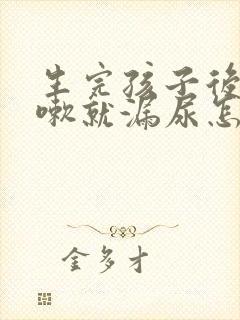 生完孩子後
嗽就漏尿怎
金多才